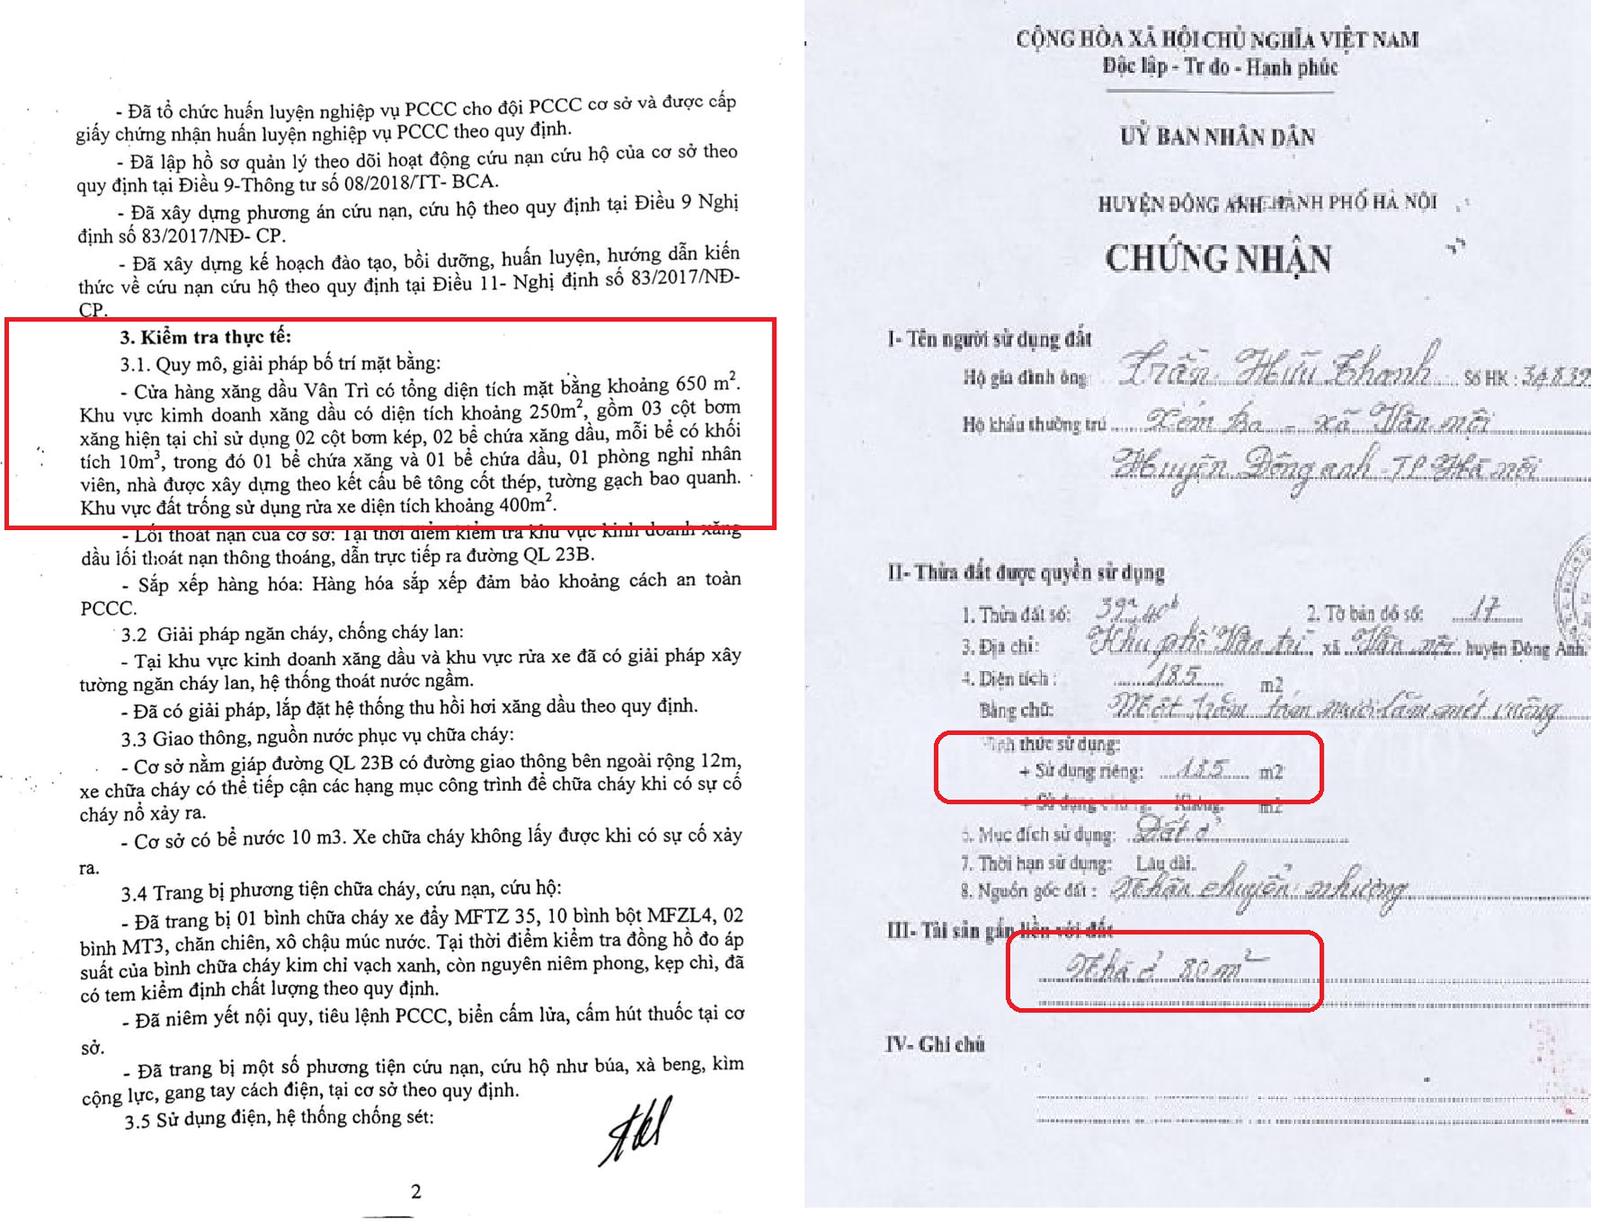 - Đã tổ chức huấn luyện nghiệp vụ PCCC cho đội PCCC cơ sở và được cấp
giấy chứng nhận huấn luyện nghiệp vụ PCCC theo quy định.
- Đã lập hồ sơ quản lý theo dõi hoạt động cứu nạn cứu hộ của cơ sở theo
quy định tại Điều 9-Thông tư số 08/2018/TT- BCA.
- Đã xây dựng phương án cứu nạn, cứu hộ theo quy định tại Điều 9 Nghị
định số 83/2017/NĐ- CP.
- Đã xây dựng kế hoạch đào tạo, bồi dưỡng, huấn luyện, hướng dẫn kiến
thức về cứu nạn cứu hộ theo quy định tại Điều 11- Nghị định số 83/2017/NĐ-
CP.
3. Kiểm tra thực tế:
3.1. Quy mô, giải pháp bố trí mặt bằng:
- Cửa hàng xăng dầu Vân Trì có tổng diện tích mặt bằng khoảng 650 m².
Khu vực kimh doanh xăng dầu có diện tích khoảng 250m², gồm 03 cột bơm
xăng hiện tại chỉ sử dụng 02 cột bơm kép, 02 bể chứa xăng dầu, mỗi bể có khối
tích 10m³, trong đó 01 bể chứa xăng và 01 bể chứa dầu, 01 phòng nghỉ nhân
viên, nhà được xây dựng theo kết cấu bê tông cốt thép, tường gạch bao quanh.
Khu vực đất trống sử dụng rửa xe diện tích khoảng 400m².
- Lối thoát nạn của cơ sở: Tại thời điểm kiểm tra khu vực kinh doanh xăng
dầu lối thoát nạn thông thoáng, dẫn trực tiếp ra đường QL 23B.
- Sắp xếp hàng hóa: Hàng hóa sắp xếp đảm bảo khoảng cách an toàn
PCCC.
3.2 Giải pháp ngăn cháy, chống cháy lan:
- Tại khu vực kinh doanh xăng dầu và khu vực rửa xe đã có giải pháp xây
tường ngăn cháy lan, hệ thống thoát nước ngầm.
- Đã có giải pháp, lắp đặt hệ thống thu hồi hơi xăng dầu theo quy định.
3.3 Giao thông, nguồn nước phục vụ chữa cháy:
- Cơ sở nằm giáp đường QL 23B có đường giao thông bên ngoài rộng 12m,
xe chữa cháy có thể tiếp cận các hạng mục công trình để chữa cháy khi có sự cố
cháy nổ xảy ra.
- Cơ sở có bể nước 10 m3. Xe chữa cháy không lấy được khi có sự cố xảy
ra.
3.4 Trang bị phương tiện chữa cháy, cứu nạn, cứu hộ:
- Đã trang bị 01 bình chữa cháy xe đẩy MFTZ 35, 10 bình bột MFZL4, 02
bình MT3, chăn chiên, xô chậu múc nước. Tại thời điểm kiểm tra đồng hồ đo áp
suất của bình chữa cháy kim chỉ vạch xanh, còn nguyên niêm phong, kẹp chì, đã
có tem kiểm định chất lượng theo quy định.
- Đã niêm yết nội quy, tiêu lệnh PCCC, biển cấm lửa, cấm hút thuốc tại cơ
sở.
- Đã trang bị một số phương tiện cứu nạn, cứu hộ như búa, xà beng, kìm
cộng lực, gang tay cách điện, tại cơ sở theo quy định.
3.5 Sử dụng điện, hệ thống chống sét:
2
CỘNG HÒA XÃ HỘI CHỦ NGHĨA VIỆT NAM
Độc lập - Tự do - Hạnh phúc
UỶ BAN NHÂN DÂN
HUYỆN ĐÔNG ANH THÀNH PHỐ HÀ NỘI
CHỨNG NHẬN
I- Tên người sử dụng đất
Hộ gia đình ông: Trần Hữu Thanh Số HK: 34839
Hộ khẩu thường trú Xóm Ba - xã Vân Nội
Huyện Đông anh - TP Hà nội
II- Thửa đất được quyền sử dụng
1. Thửa đất số: 39ª 40ᵇ 2. Tờ bản đồ số: 17
3. Địa chỉ: Khu phố Vân trì, xã Vân nội huyện Đông Anh.
4. Diện tích: 185 m2
Bằng chữ: Một trăm tám mươi lăm mét vuông
Hình thức sử dụng:
+ Sử dụng riêng: 185 m2
+ Sử dụng chung: Không m2
6. Mục đích sử dụng: Đất ở
7. Thời hạn sử dụng: Lâu dài.
8. Nguồn gốc đất: Nhận chuyển nhượng
III- Tài sản gắn liền với đất
Nhà ở 80 m²
IV- Ghi chú